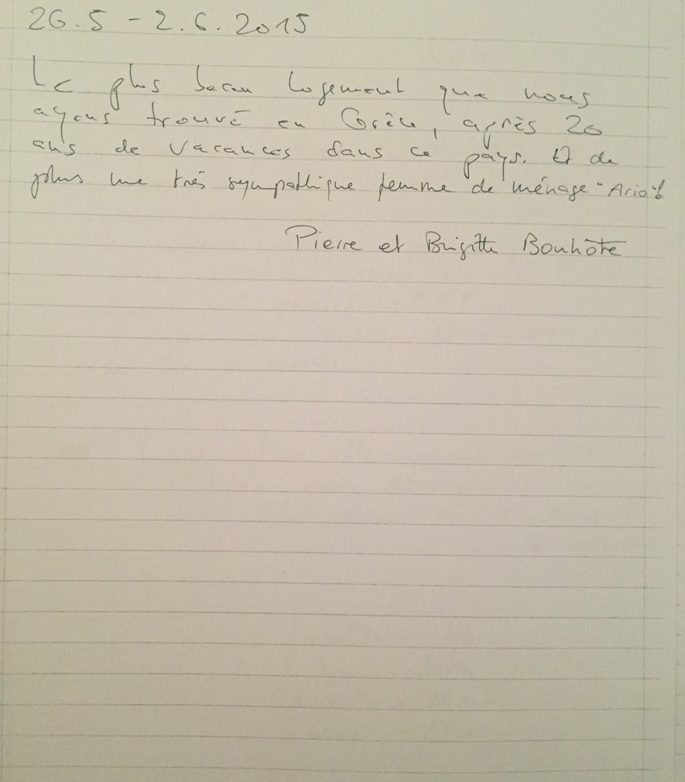 26.5 - 2.6.2015
Le plus beau logement que nous
ayons trouvé en Grèce, après 20
ans de vacances dans ce pays. Et de
plus une très sympathique femme de ménage
Pierre et Brigitte Bonhôte